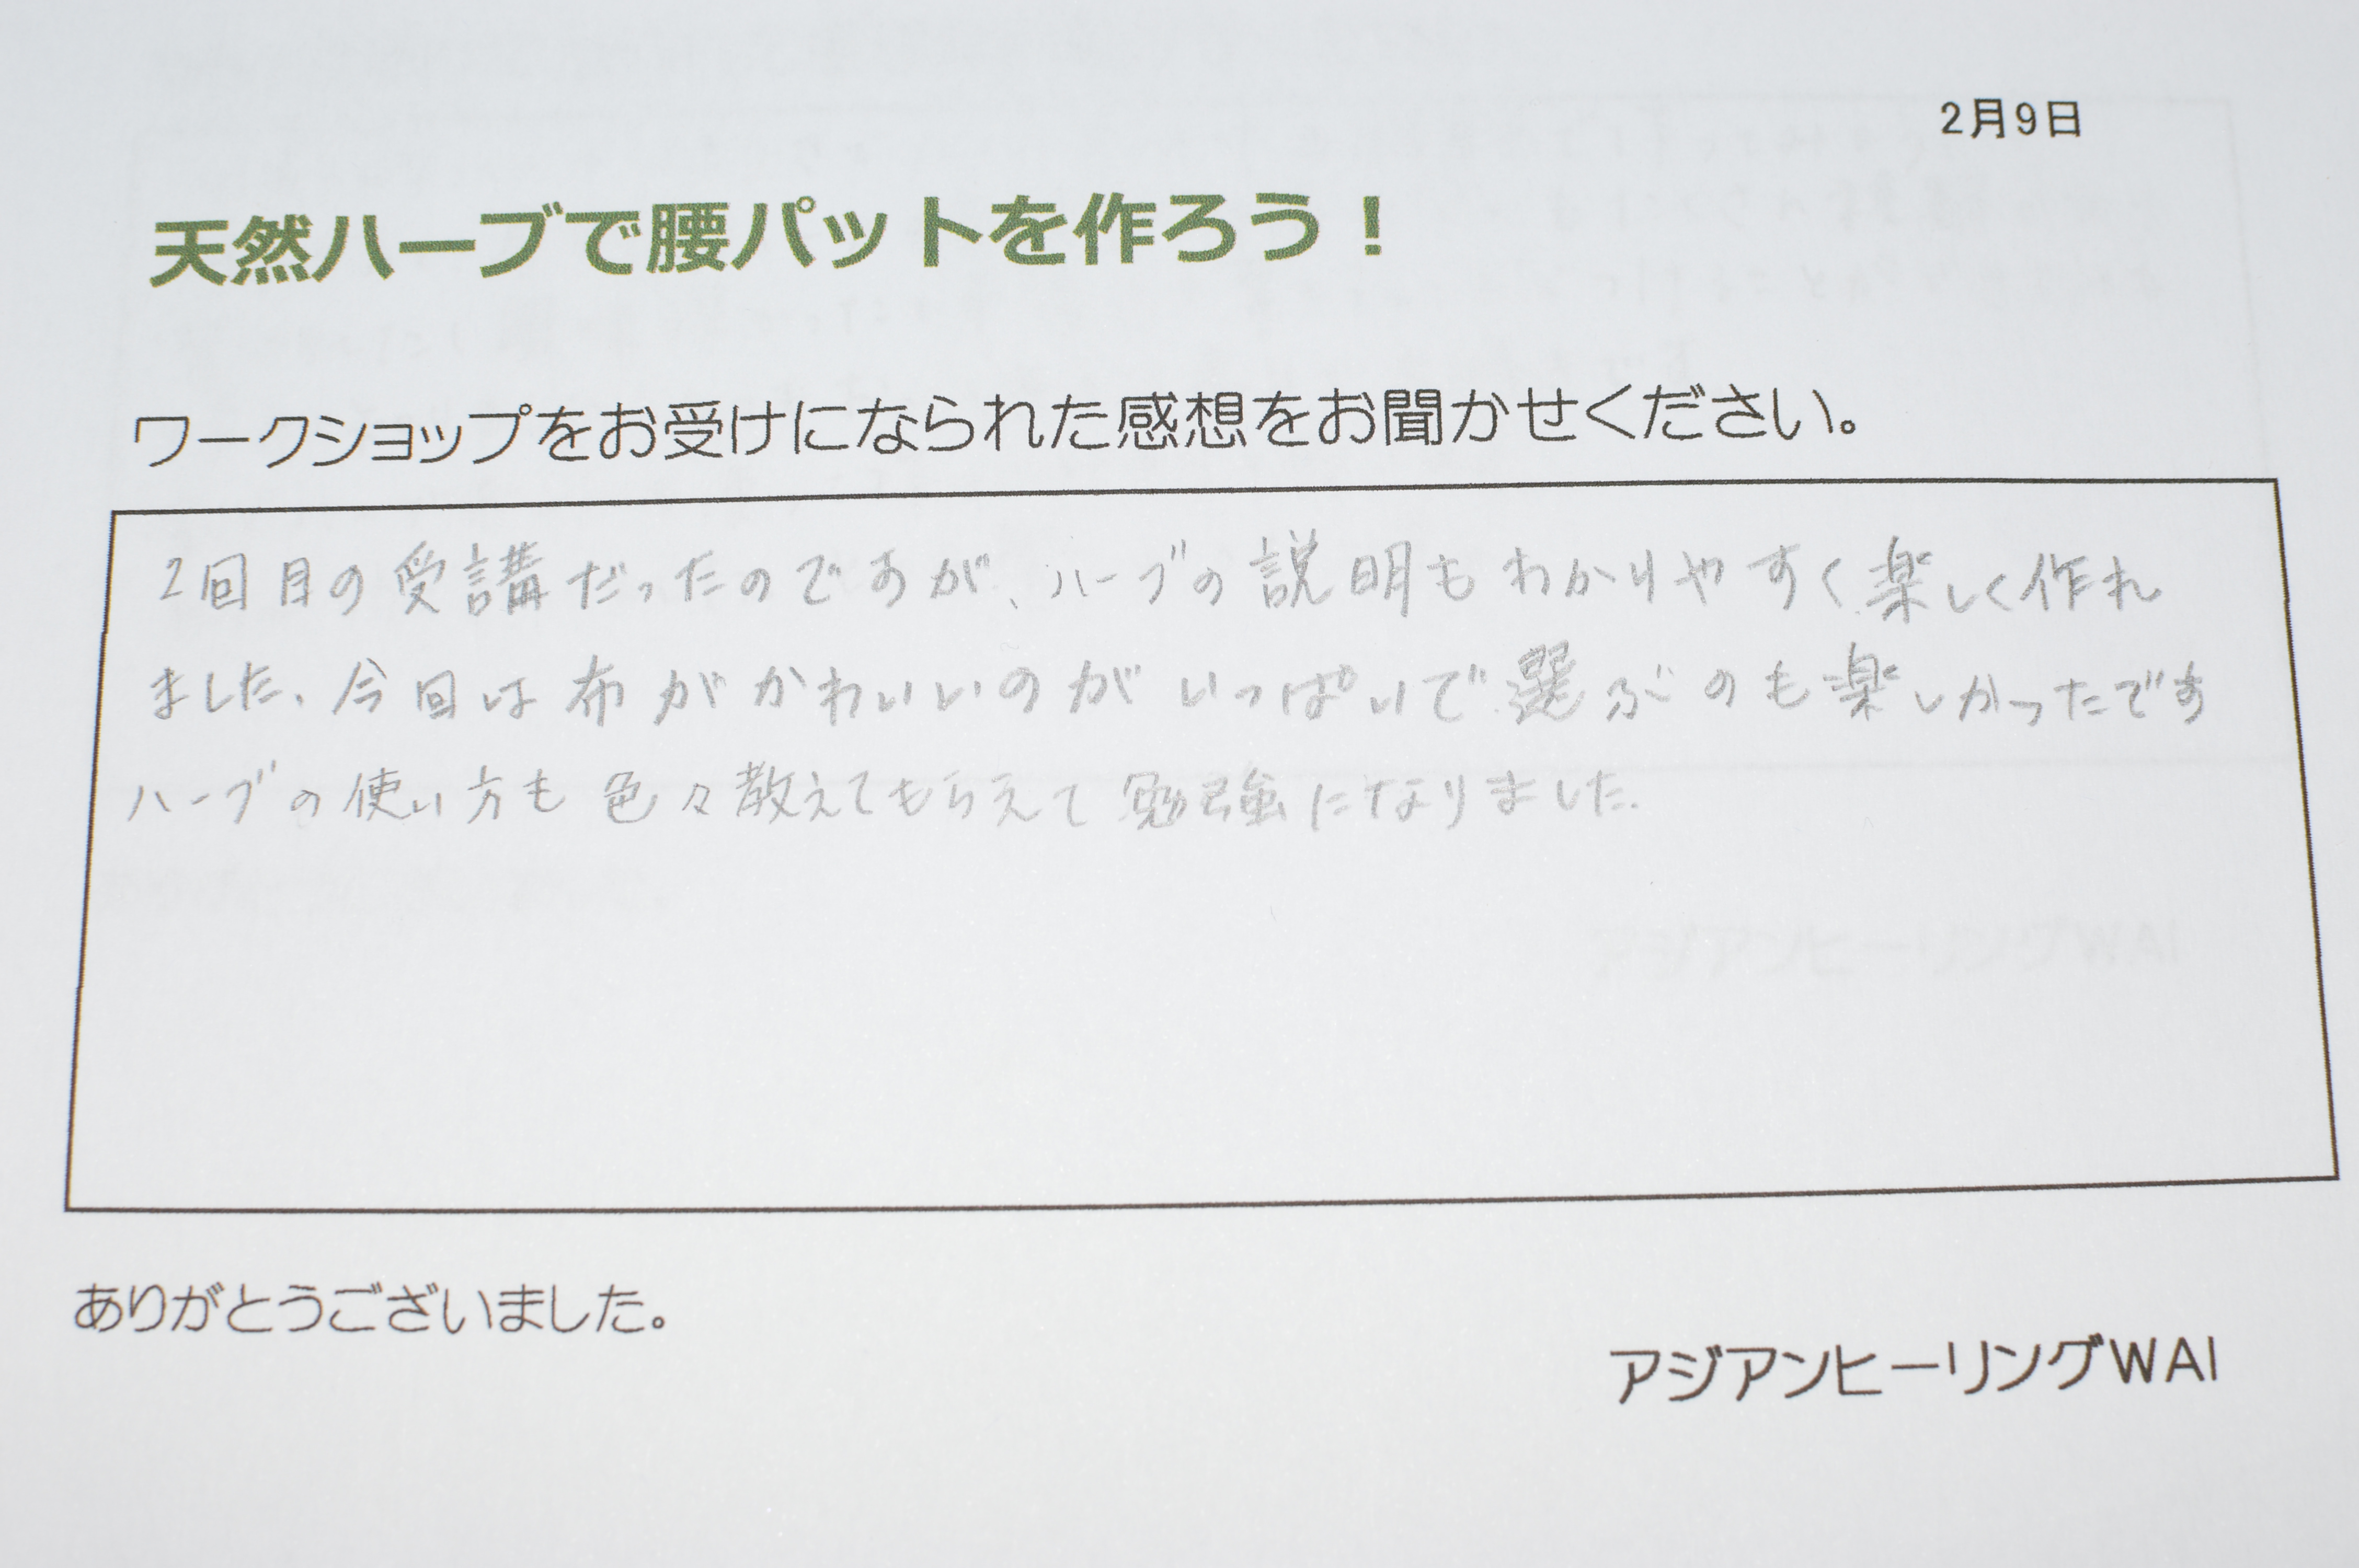 2月9日
天然ハーブで腰パットを作ろう！
ワークショップをお受けになられた感想をお聞かせください。
2回目の受講だったのですが、ハーブの説明もわかりやすく楽しく作れ
ました、今回は布がかわいいのがいっぱいで選ぶのも楽しかったです
ハーブの使い方も色々教えてもらえて勉強になりました.
ありがとうございました。
アジアンヒーリングWAI